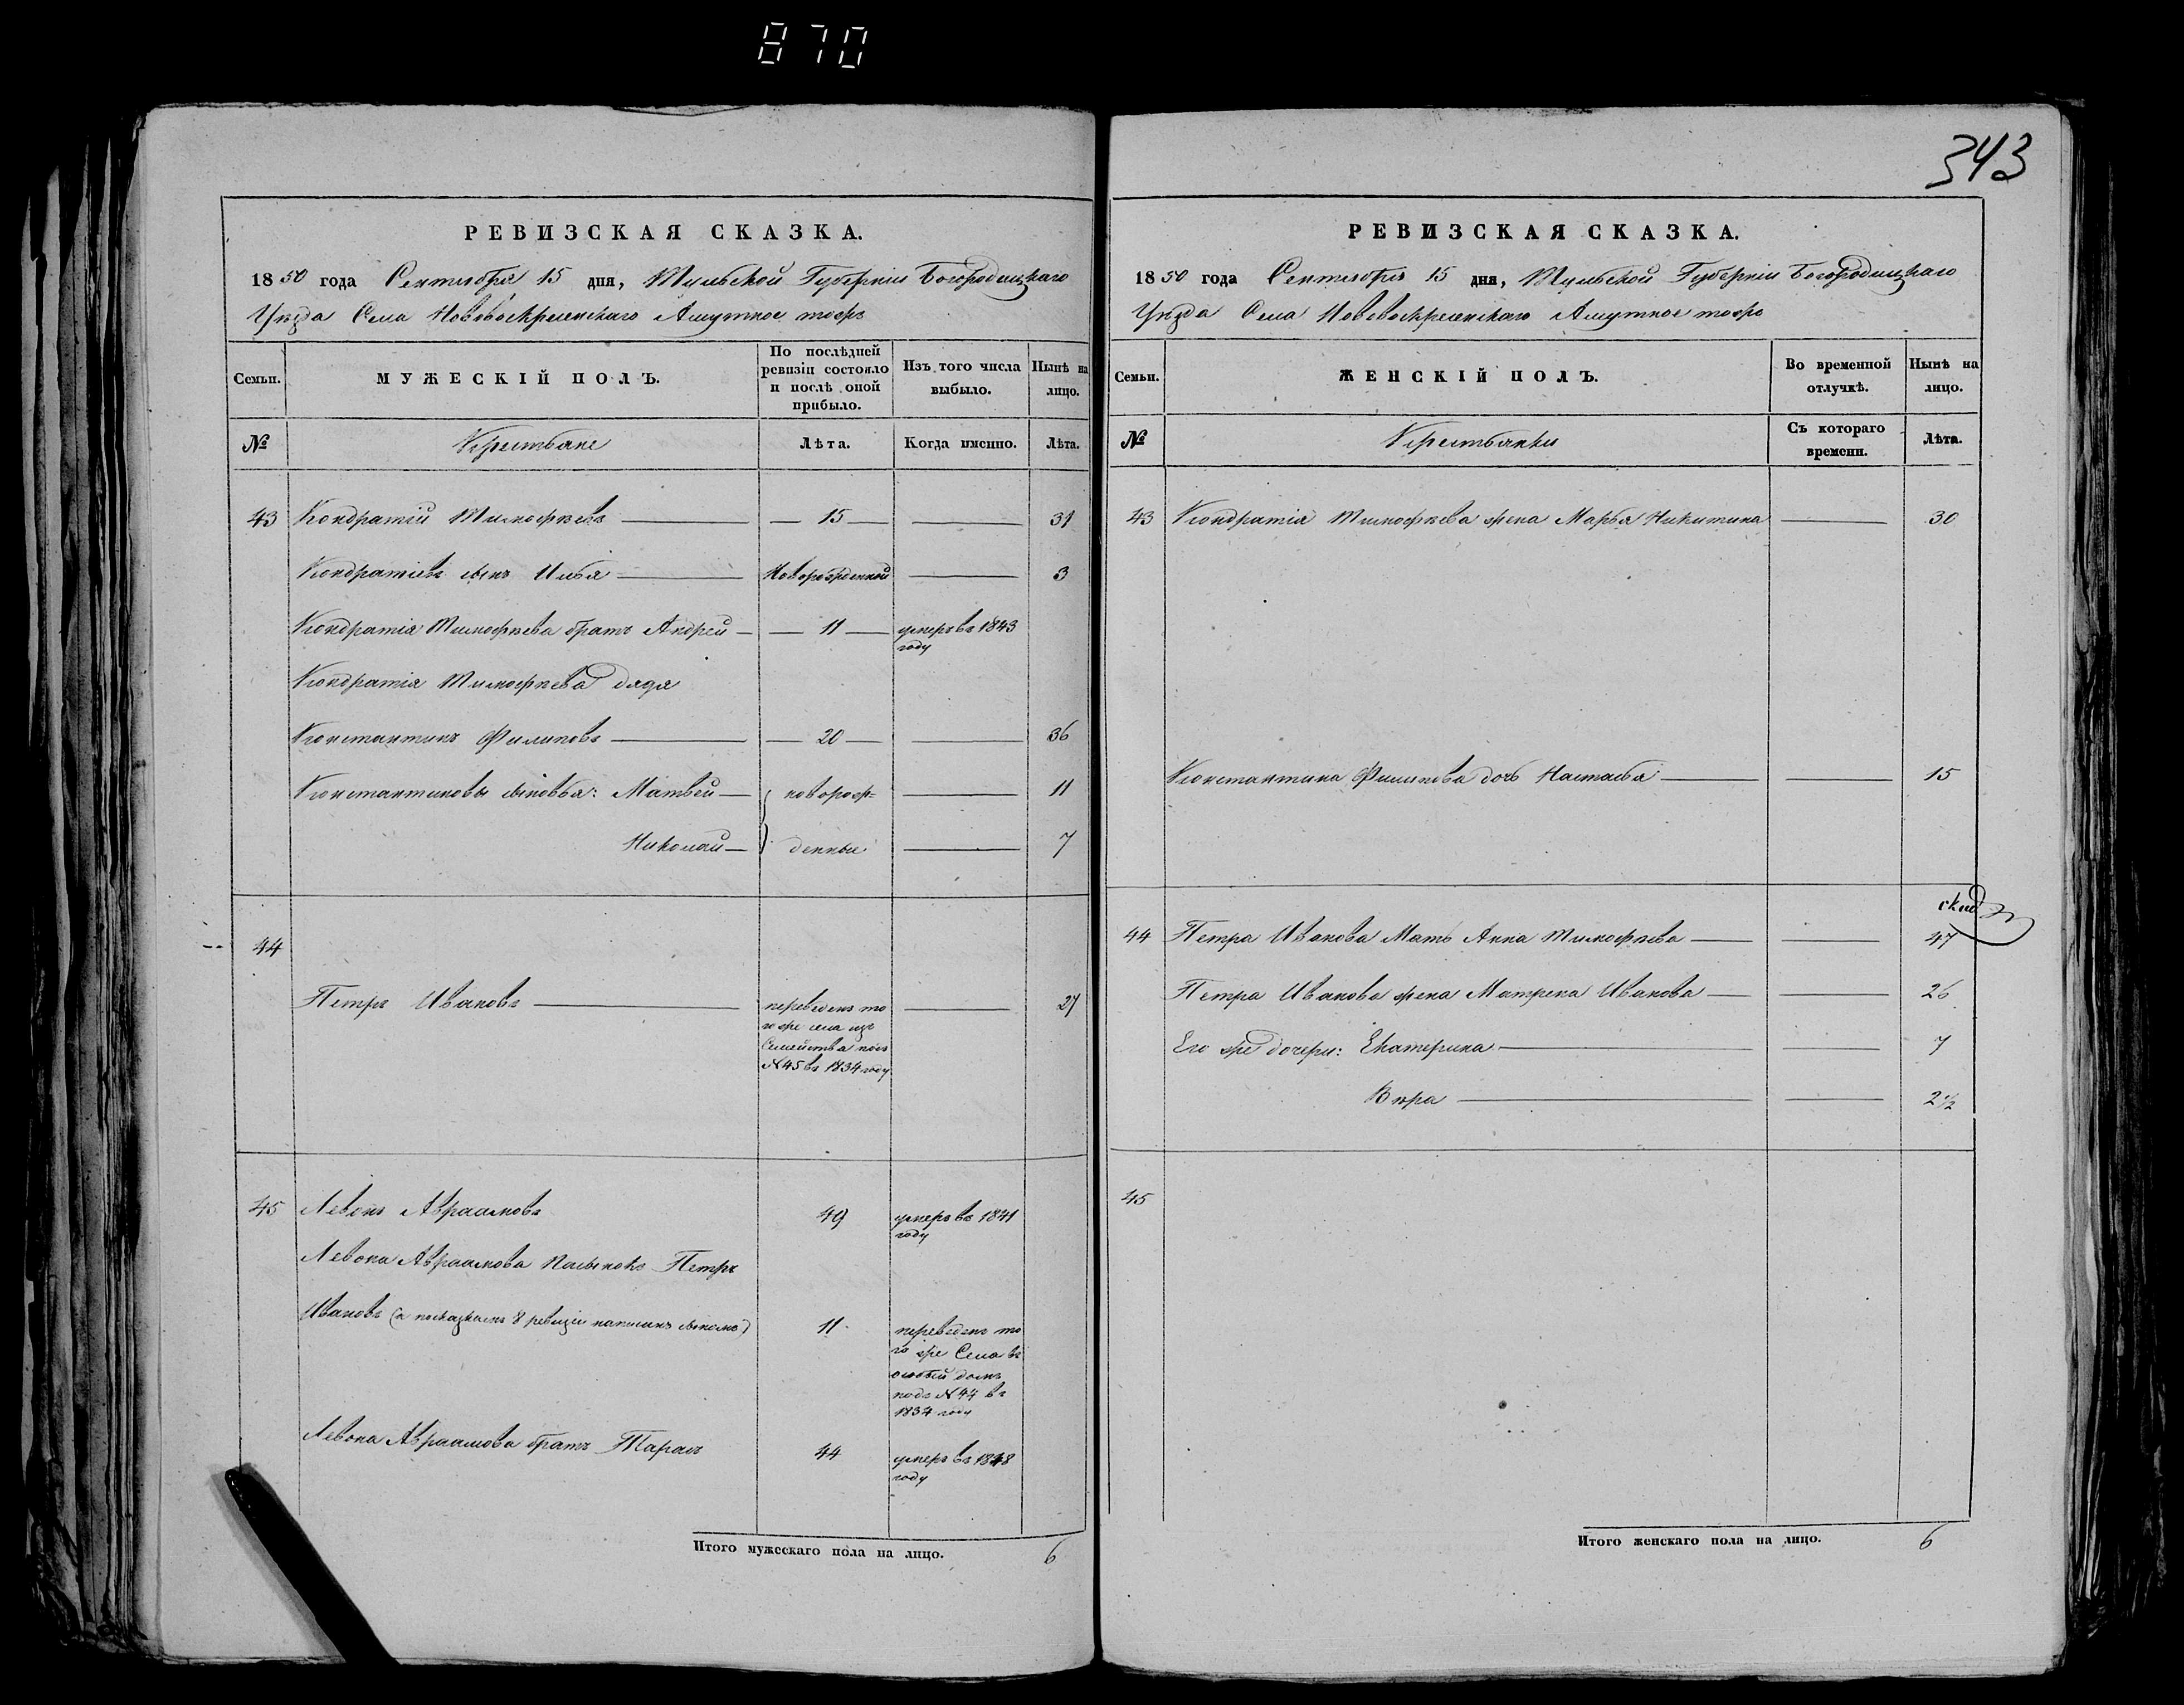 870
343
РЕВИЗСКАЯ СКАЗКА.
1850 года Сентября 15 дня, Тульской Губерніи Богородицкаго
Уѣзда Села Нововоскресенскаго тожъ
Семьи.
МУЖЕСКІЙ ПОЛЪ.
По послѣдней
ревизіи состояло
и послѣ оной
прибыло.
Изъ того числа
выбыло.
Нынѣ на
лицо.
№
Крестьяне
Лѣта.
Когда именно.
Лѣта.
43 Кондратій Тимофѣевъ — 15 — 31
Кондратіевъ сынъ Илья — Новорожденной — 3
Кондратія Тимофѣева братъ Андрей — 11 — умеръ въ 1843
году
Кондратія Тимофѣева дядя
Константинъ Филиповъ — 20 — 36
Константиновы сыновья: Матвей — новорож= — 11
Николай — денные — 7
44
Петръ Ивановъ — переведенъ то — 27
го же села изъ
Семейства подъ
№ 45 въ 1834 году
45 Левонъ Авраамовъ 49 умеръ въ 1841
году
Левона Авраамова Пасынокъ Петръ
Ивановъ (в посказкамъ 8 ревизіи написанъ сыномъ) 11 переведенъ то
го же Села въ
особый домъ
подъ № 44 въ
1834 году
Левона Авраамова братъ Тарасъ 44 умеръ въ 1848
году
Итого мужескаго пола на лицо. 6
РЕВИЗСКАЯ СКАЗКА.
1850 года Сентября 15 дня, Тульской Губерніи Богородицкаго
Уѣзда Села Нововоскресенскаго тожъ
Семьи.
ЖЕНСКІЙ ПОЛЪ.
Во временной
отлучкѣ.
Нынѣ на
лицо.
№
Крестьянки
Съ котораго
времени.
Лѣта.
43 Кондратія Тимофѣева жена Марья Никитина — 30
Константина Филипова дочь Настасья — 15
44 Петра Иванова Мать Анна Тимофѣева — 47
Петра Иванова жена Матрена Иванова — 26
Его же дочери: Екатерина — 7
Вѣра — 2½
45
Итого женскаго пола на лицо. 6